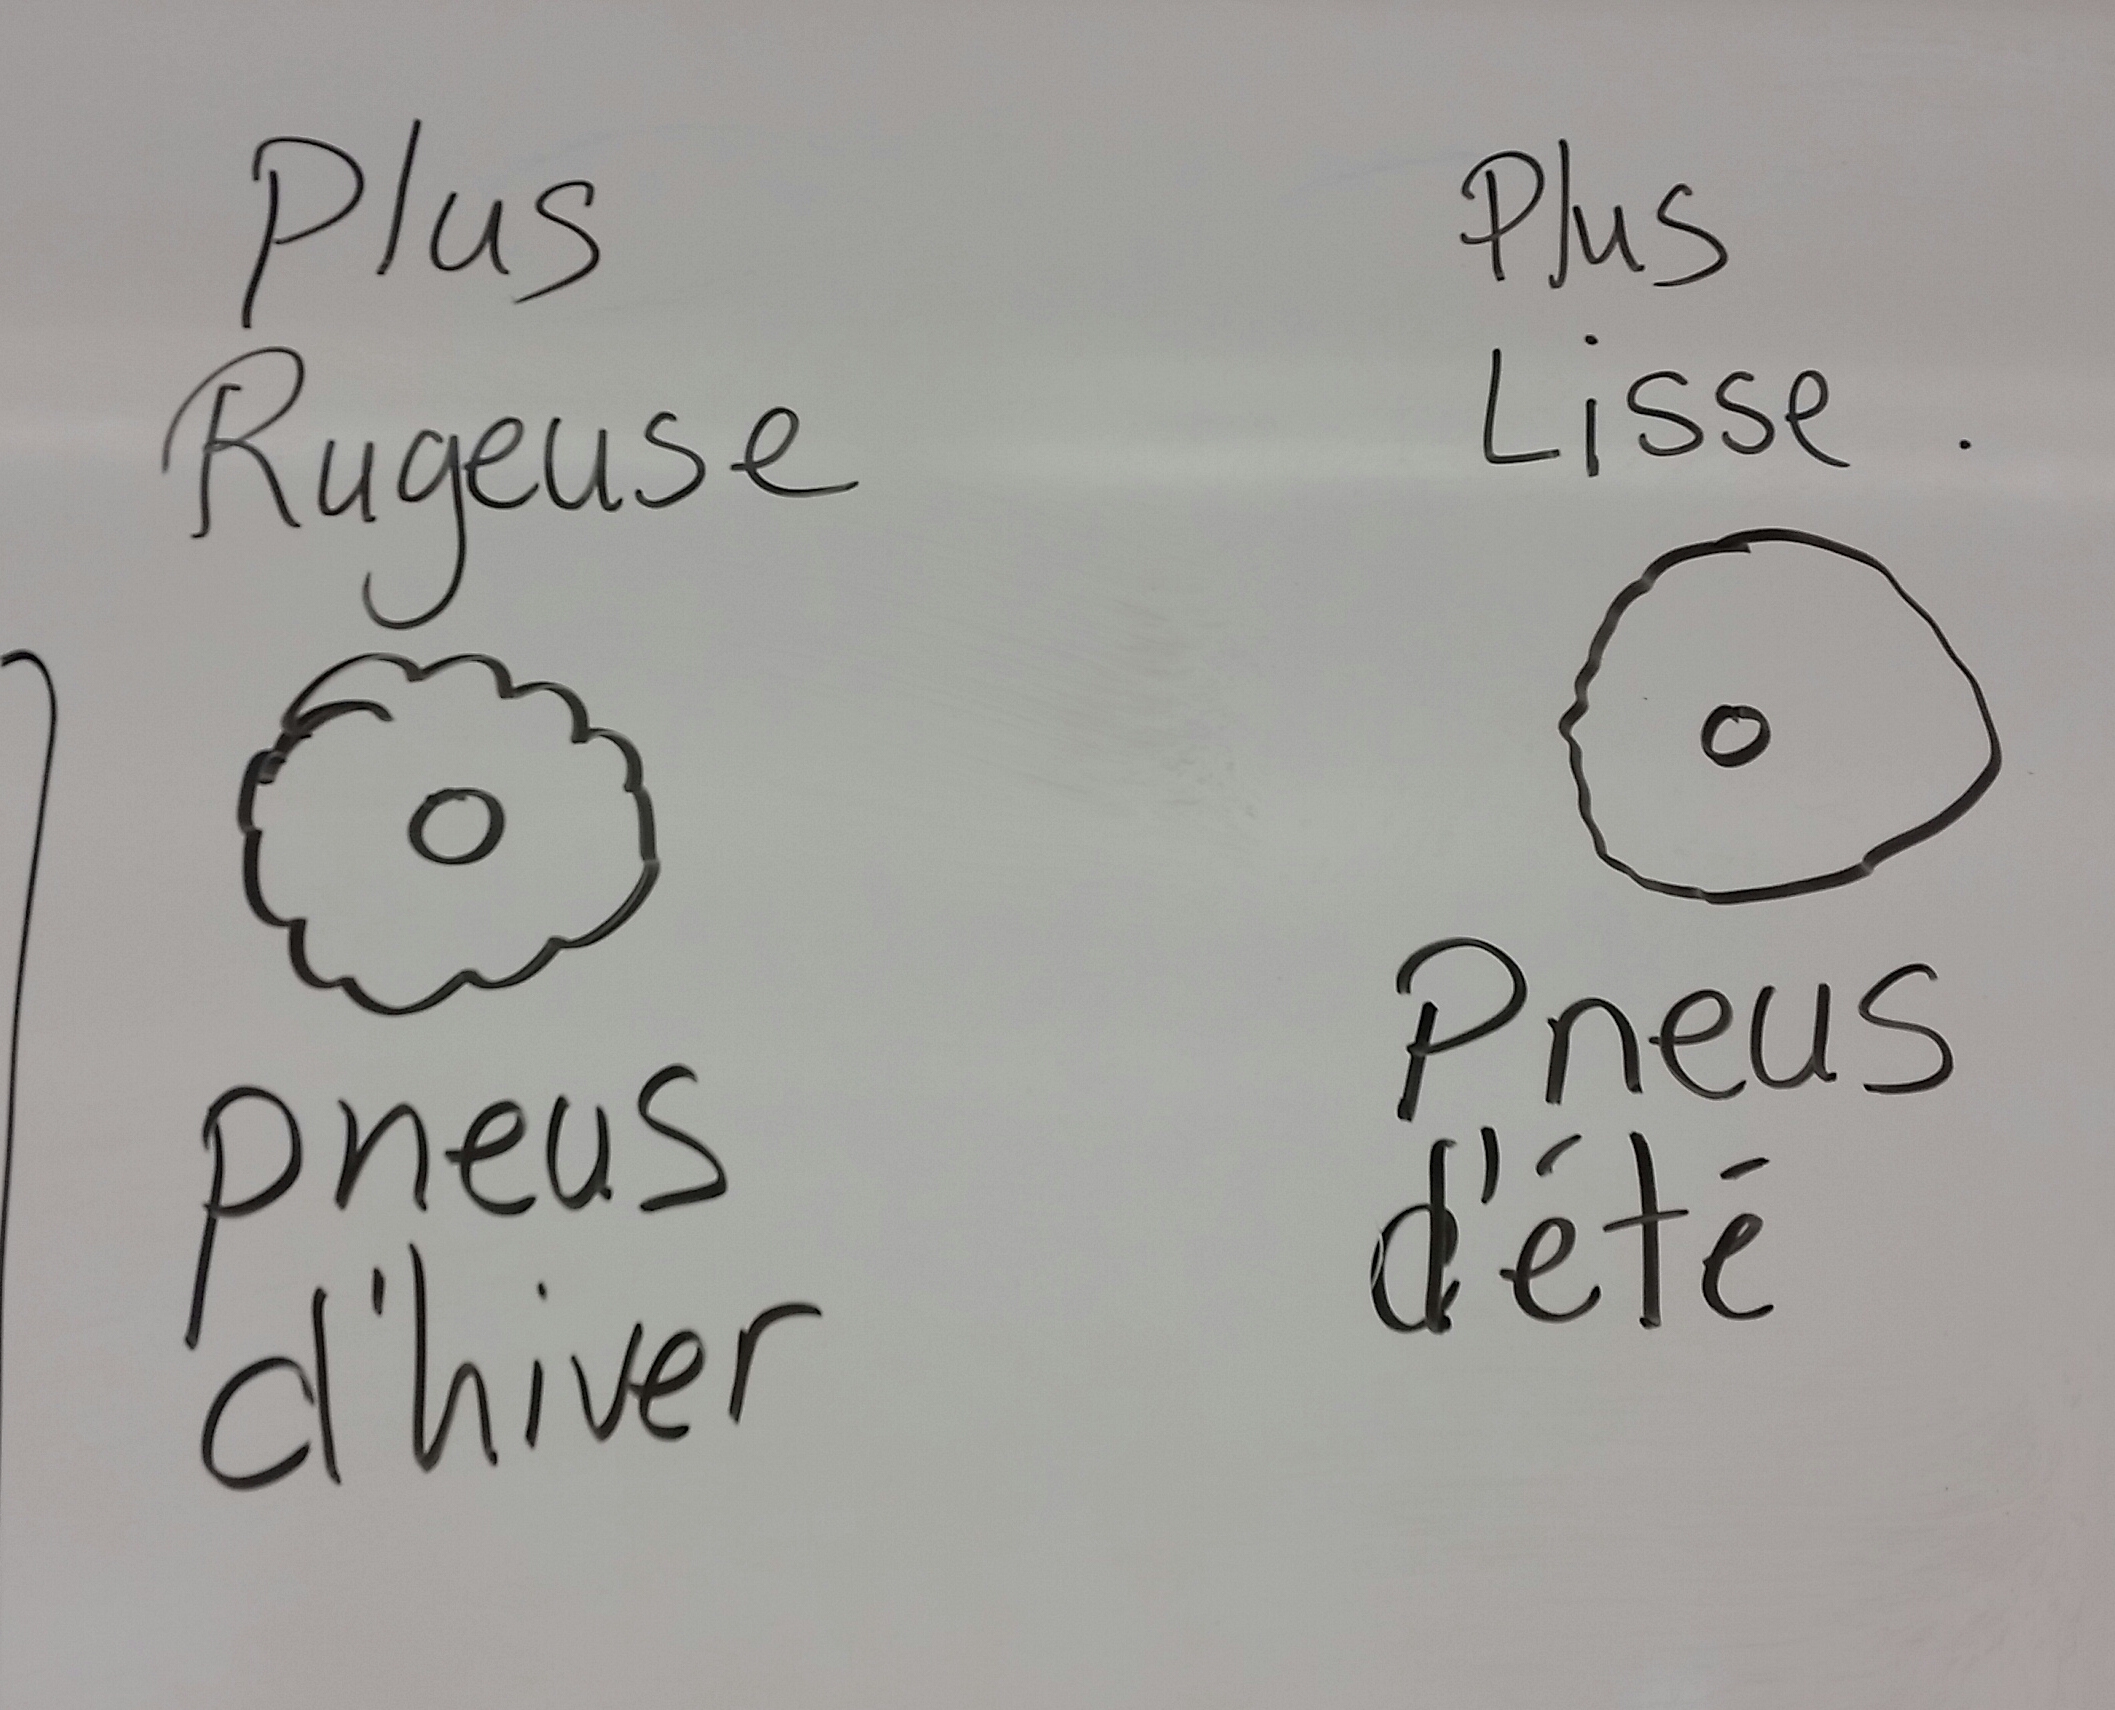 Plus
Rugeuse
pneus
d'hiver
Plus
Lisse.
Pneus
d'été